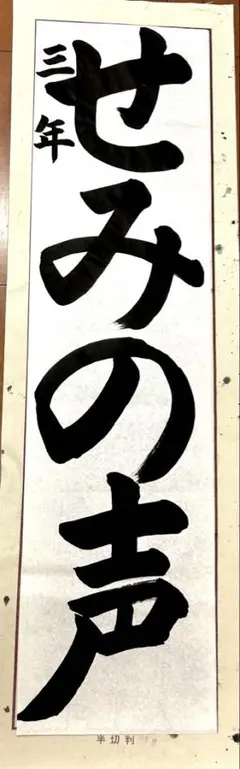 せみの声
三年
半切判